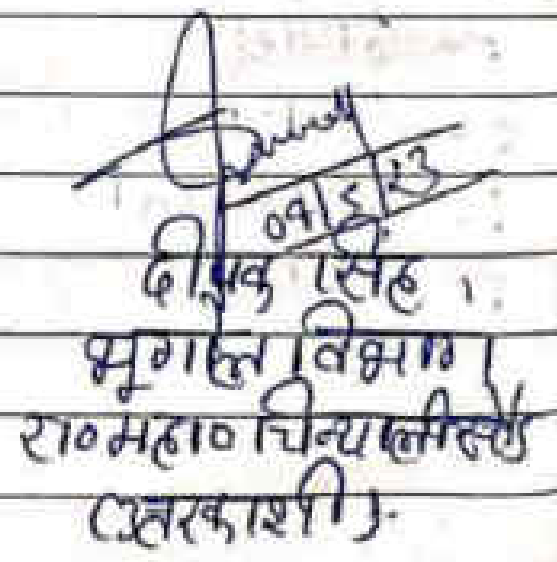 09/5/23
दीपक सिंह
भूगोल विभाग
रा० महा० चिन्यालीसौड़
(उत्तरकाशी)